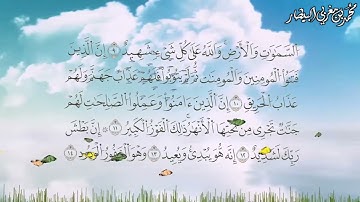 محمد بن مغربي البيضار
السَّمَوَتِ وَالْأَرْضِ وَاللَّهُ عَلَى كُلِّ شَىْءٍ شَهِيدٌ ٩ إِنَّ الَّذِينَ
فَتَنُوا الْمُؤْمِنِينَ وَالْمُؤْمِنَتِ ثُمَّ لَمْ يَتُوبُوا فَلَهُمْ عَذَابُ جَهَنَّمَ وَلَهُمْ
عَذَابُ الْحَرِيقِ ١٠ إِنَّ الَّذِينَ ءَامَنُوا وَعَمِلُوا الصَّلِحَتِ لَهُمْ
جَنَّتٌ تَجْرِى مِن تَحْتِهَا الْأَنْهَرُ ذَلِكَ الْفَوْزُ الْكَبِيرُ ١١ إِنَّ بَطْشَ
رَبِّكَ لَشَدِيدٌ ١٢ إِنَّهُ هُوَ يُبْدِئُ وَيُعِيدُ ١٣ وَهُوَ الْغَفُورُ الْوَدُودُ ١٤